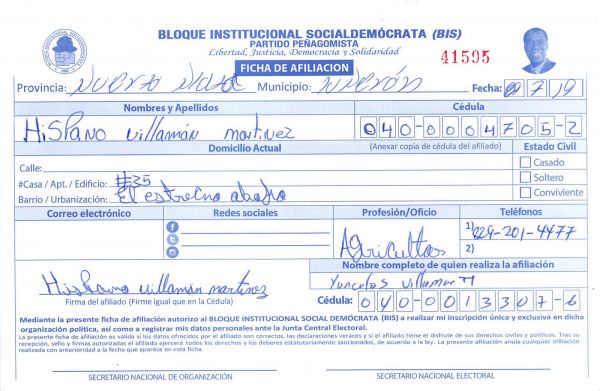 BLOQUE INSTITUCIONAL SOCIALDEMÓCRATA (BIS)
PARTIDO PEÑAGOMISTA
Libertad, Justicia, Democracia y Solidaridad
41595
FICHA DE AFILIACION
Provincia: Municipio: Fecha: 7 19
Nombres y Apellidos Cédula
HISPANO Villamán martinez 040-0004705-2
Domicilio Actual (Anexar copia de cédula del afiliado) Estado Civil
Calle: Casado
#Casa / Apt. / Edificio: #35 Soltero
Barrio / Urbanización: El estrecho abajo Conviviente
Correo electrónico Redes sociales Profesión/Oficio Teléfonos
Agricultor 1) 829-201-4477
2)
Nombre completo de quien realiza la afiliación
Hispano villaman martinez
Firma del afiliado (Firme igual que en la Cédula) Cédula: 040-0013307-6
Mediante la presente ficha de afiliación autorizo al BLOQUE INSTITUCIONAL SOCIAL DEMÓCRATA (BIS) a realizar mi inscripción única y exclusiva en dicha
organización política, así como a registrar mis datos personales ante la Junta Central Electoral.
La presente ficha de afiliación es válida si los datos ofrecidos por el afiliado son correctos, las declaraciones veraces y si el afiliado tiene el disfrute de sus derechos civiles y políticos. Tras su
recepción, sello y firmas autorizadas el afiliado ejercerá todos los derechos y los deberes estatutariamente sancionados, de acuerdo a la ley. La presente afiliación anula cualquier afiliación
realizada con anterioridad a la fecha que aparece en esta ficha.
SECRETARIO NACIONAL DE ORGANIZACIÓN SECRETARIO NACIONAL ELECTORAL